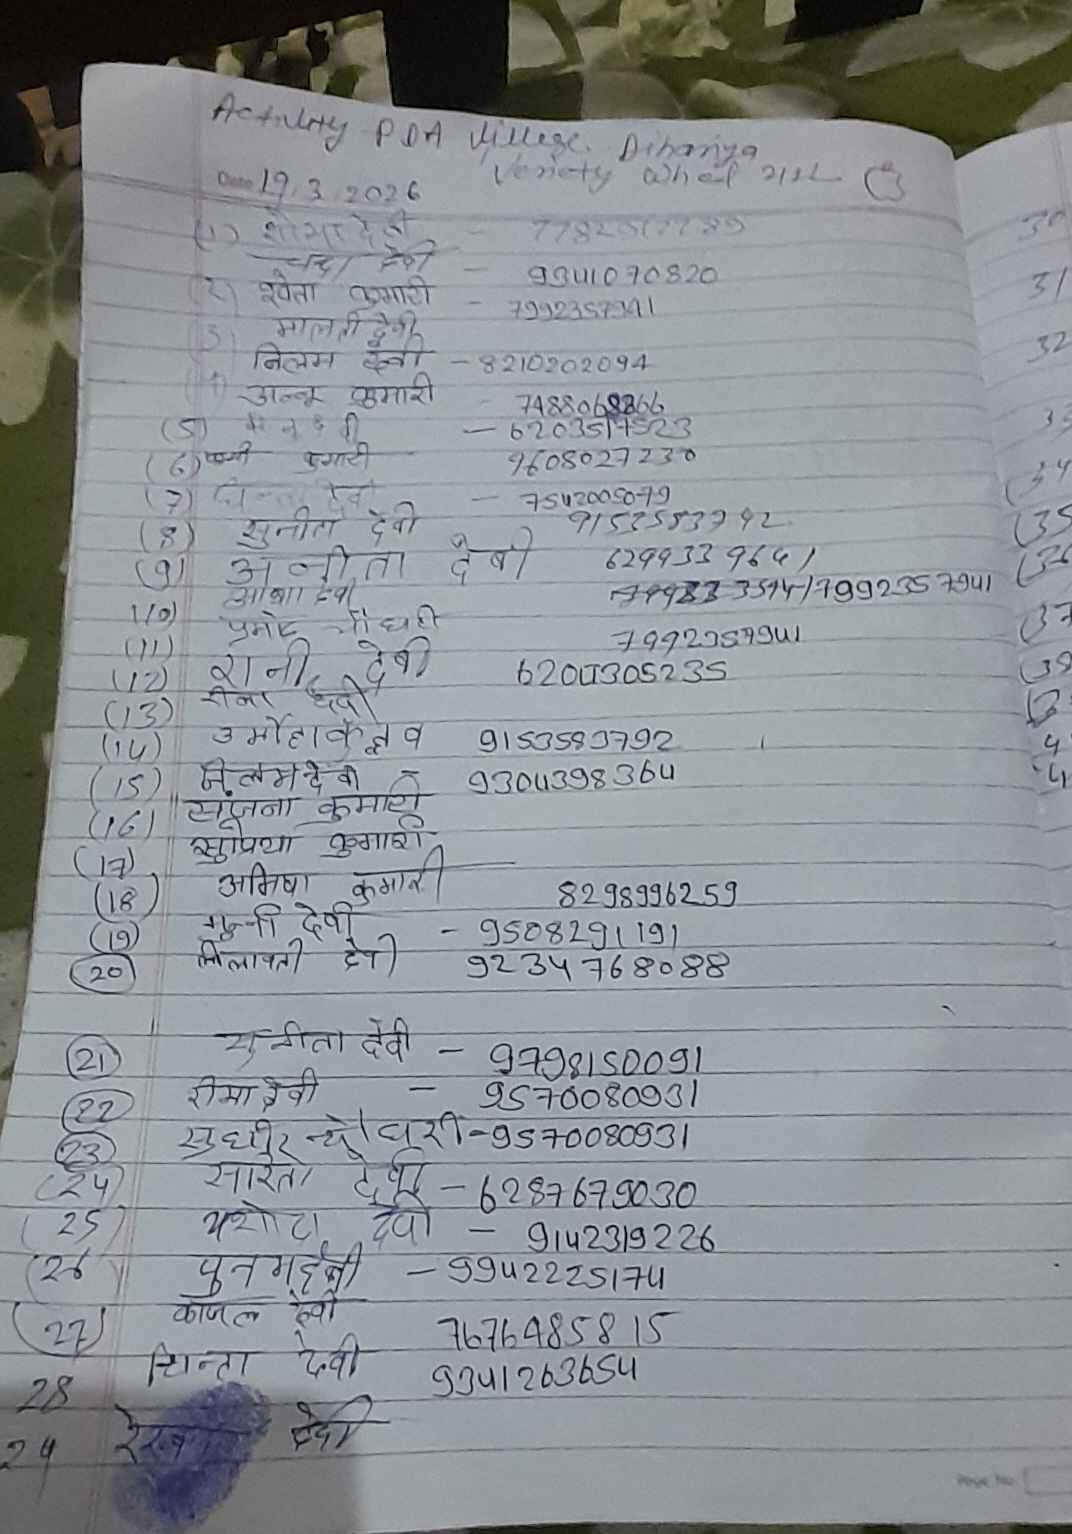 Activity PDA Village Dihariya
Variety
Date 19.3.2026
(1) देवी - 
चन्दा देवी - 9341070820
(2) श्वेता कुमारी - 7992357941
(3) मालती देवी
निलम देवी - 8210202094
(4) अन्नू कुमारी - 7488068866
(5) - 6203517523
(6) कुमारी 9608027230
(7) देवी - 7542005079
(8) सुनीता देवी 9153583792
(9) अनीता देवी 6299339641
(10) आशा देवी 7992357941
(11) प्रमोद चौधरी 7992357941
(12) रानी देवी 6204305235
(13) रीना देवी
(14) 9153583792
(15) निलम देवी - 9304398364
(16) सजना कुमारी
(17) सुप्रिया कुमारी
(18) अमिषा कुमारी 8298996259
(19) मुन्नी देवी - 9508291191
(20) लिलावती देवी 9234768088
(21) सुनीता देवी - 9798150091
(22) रीमा देवी - 9570080931
(23) सुधीर चौधरी - 9570080931
(24) सरिता देवी - 6287679030
(25) यशोदा देवी - 9142319226
(26 पुनम देवी - 9942225174
(27) काजल देवी 7676485815
28 चिन्ता देवी 9341263654
29 रेखा देवी
30
31
32
33
(34
(35
(36
(37
(38